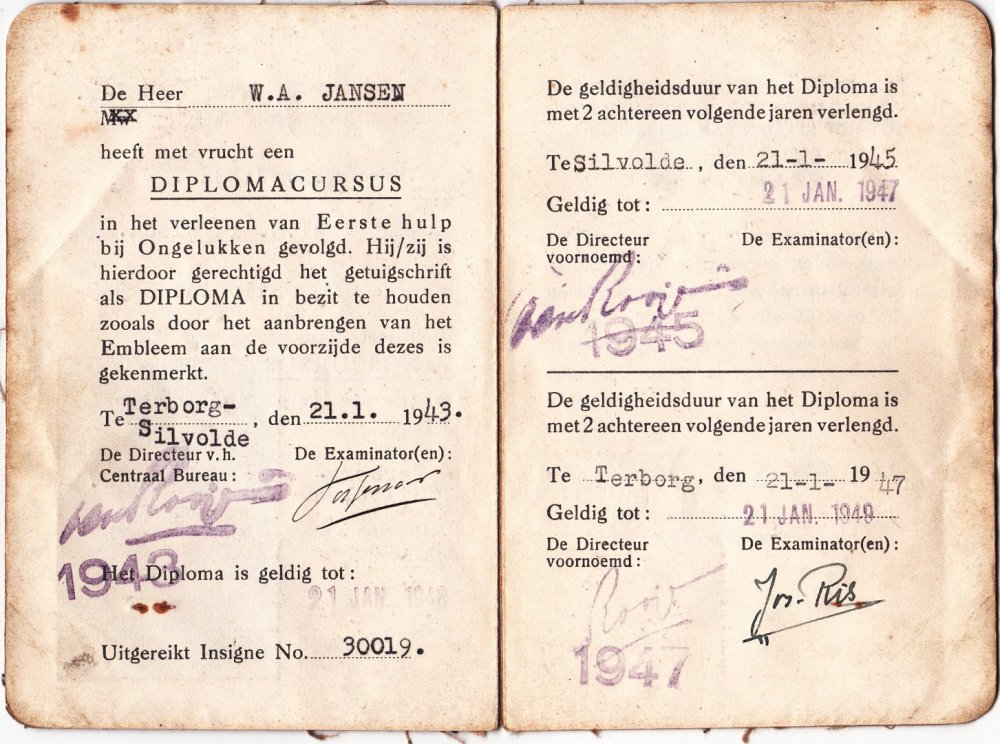 De Heer W.A. JANSEN
heeft met vrucht een
DIPLOMACURSUS
in het verleenen van Eerste hulp
bij Ongelukken gevolgd. Hij/zij is
hierdoor gerechtigd het getuigschrift
als DIPLOMA in bezit te houden
zooals door het aanbrengen van het
Embleem aan de voorzijde dezes is
gekenmerkt.
Te Terborg-
Silvolde, den 21.1. 1943.
De Directeur v.h. De Examinator(en):
Centraal Bureau:
van Rooij
1943
Het Diploma is geldig tot:
21 JAN
Uitgereikt Insigne No. 30019.
De geldigheidsduur van het Diploma is
met 2 achtereen volgende jaren verlengd.
Te Silvolde, den 21-1- 1945
Geldig tot: 21 JAN. 1947
De Directeur De Examinator(en):
voornoemd:
van Rooij
1945
De geldigheidsduur van het Diploma is
met 2 achtereen volgende jaren verlengd.
Te Terborg, den 21-1- 1947
Geldig tot: 21 JAN. 1949
De Directeur De Examinator(en):
voornoemd:
Rooij Jos. Ris
1947